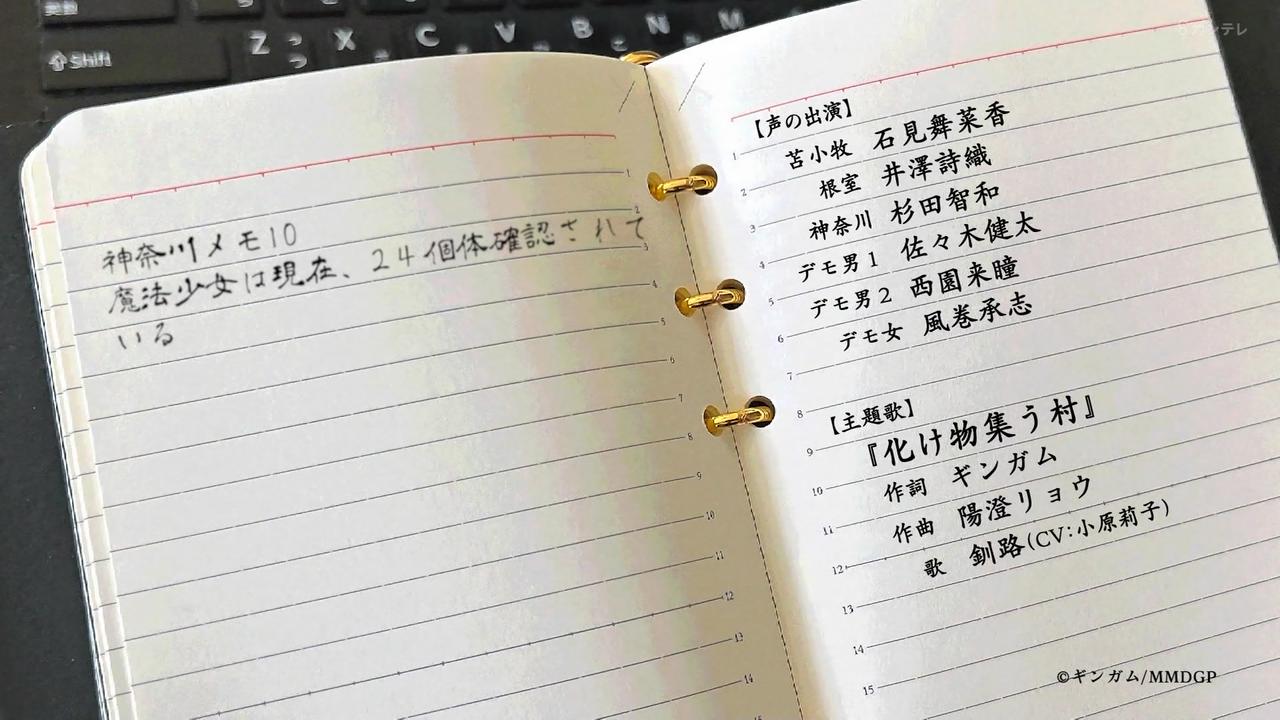 Shift
Z
っ
つ
X
C
V
B
N
M
神奈川メモ10
魔法少女は現在、24個体確認されて
いる
1
2
3
4
5
6
7
8
9
10
11
12
13
14
15
【声の出演】
苫小牧 石見舞菜香
根室 井澤詩織
神奈川 杉田智和
デモ男1 佐々木健太
デモ男2 西園来瞳
デモ女 風巻承志
【主題歌】
『化け物集う村』
作詞 ギンガム
作曲 陽澄リョウ
歌 釧路(CV:小原莉子)
1
2
3
4
5
6
7
8
9
10
11
12
13
14
15
©ギンガム/MMDGP
カンテレ